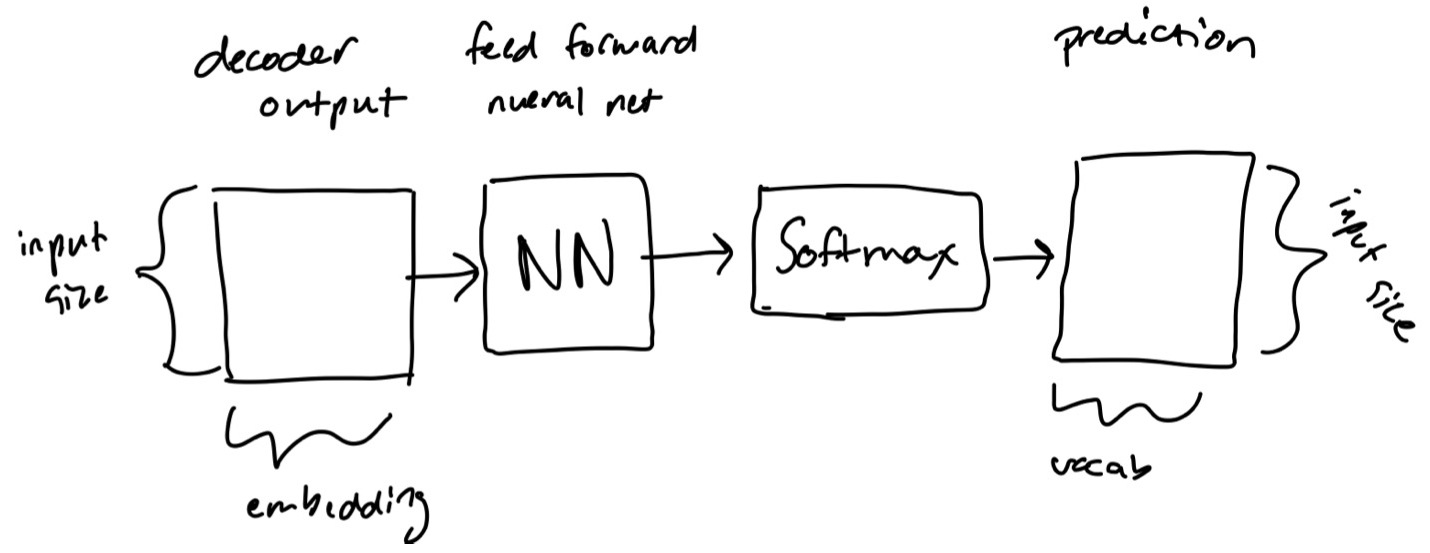 decoder
output
feed forward
nueral net
prediction
input
size
NN
Softmax
input
size
embedding
vocab